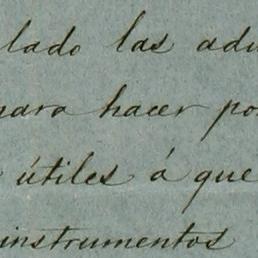 lado las adu
para hacer po
útiles á que
instrumentos